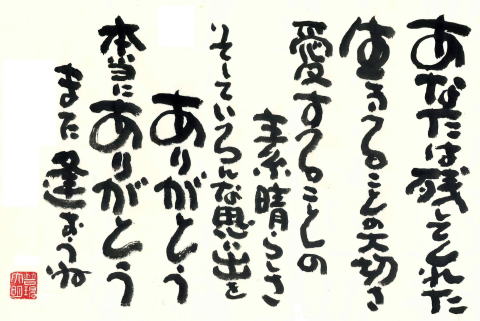 あなたは残してくれた
生きることの大切さ
愛することの
素晴らしさ
そしていろんな思い出を
ありがとう
本当にありがとう
また逢おうね